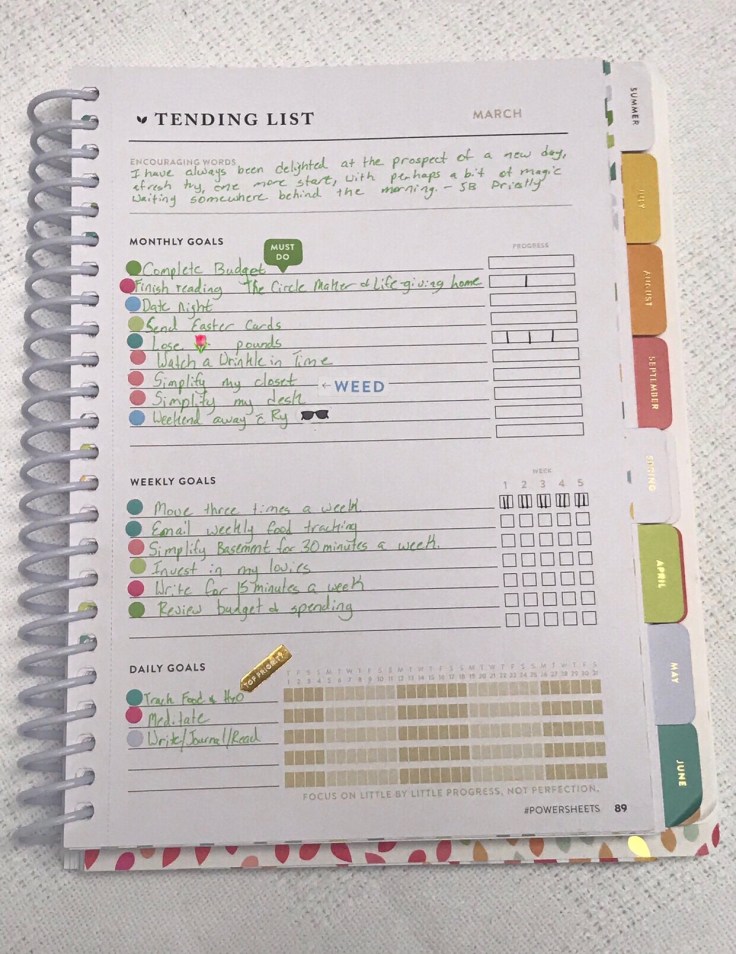 TENDING LIST MARCH
ENCOURAGING WORDS
I have always been delighted at the prospect of a new day,
a fresh try, one more start, with perhaps a bit of magic
waiting somewhere behind the morning. - JB Priestly
MONTHLY GOALS
MUST
DO
PROGRESS
Complete Budget
Finish reading The Circle Maker & Life-giving home
Date night
Send Easter Cards
Lose pounds
Watch a Wrinkle in Time
Simplify my closet ← WEED
Simplify my desk
Weekend away c̄ Ry
WEEKLY GOALS
WEEK
1 2 3 4 5
Move three times a week
Email weekly food tracking
Simplify Basement for 30 minutes a week.
Invest in my lovies
Write for 15 minutes a week
Review budget & spending
DAILY GOALS
TOP PRIORITY
1 2 3 4 5 6 7 8 9 10 11 12 13 14 15 16 17 18 19 20 21 22 23 24 25 26 27 28 29 30 31
Track Food & H2O
Meditate
Write/Journal/Read
FOCUS ON LITTLE BY LITTLE PROGRESS, NOT PERFECTION.
#POWERSHEETS 89
SUMMER
JULY
AUGUST
SEPTEMBER
SPRING
APRIL
MAY
JUNE